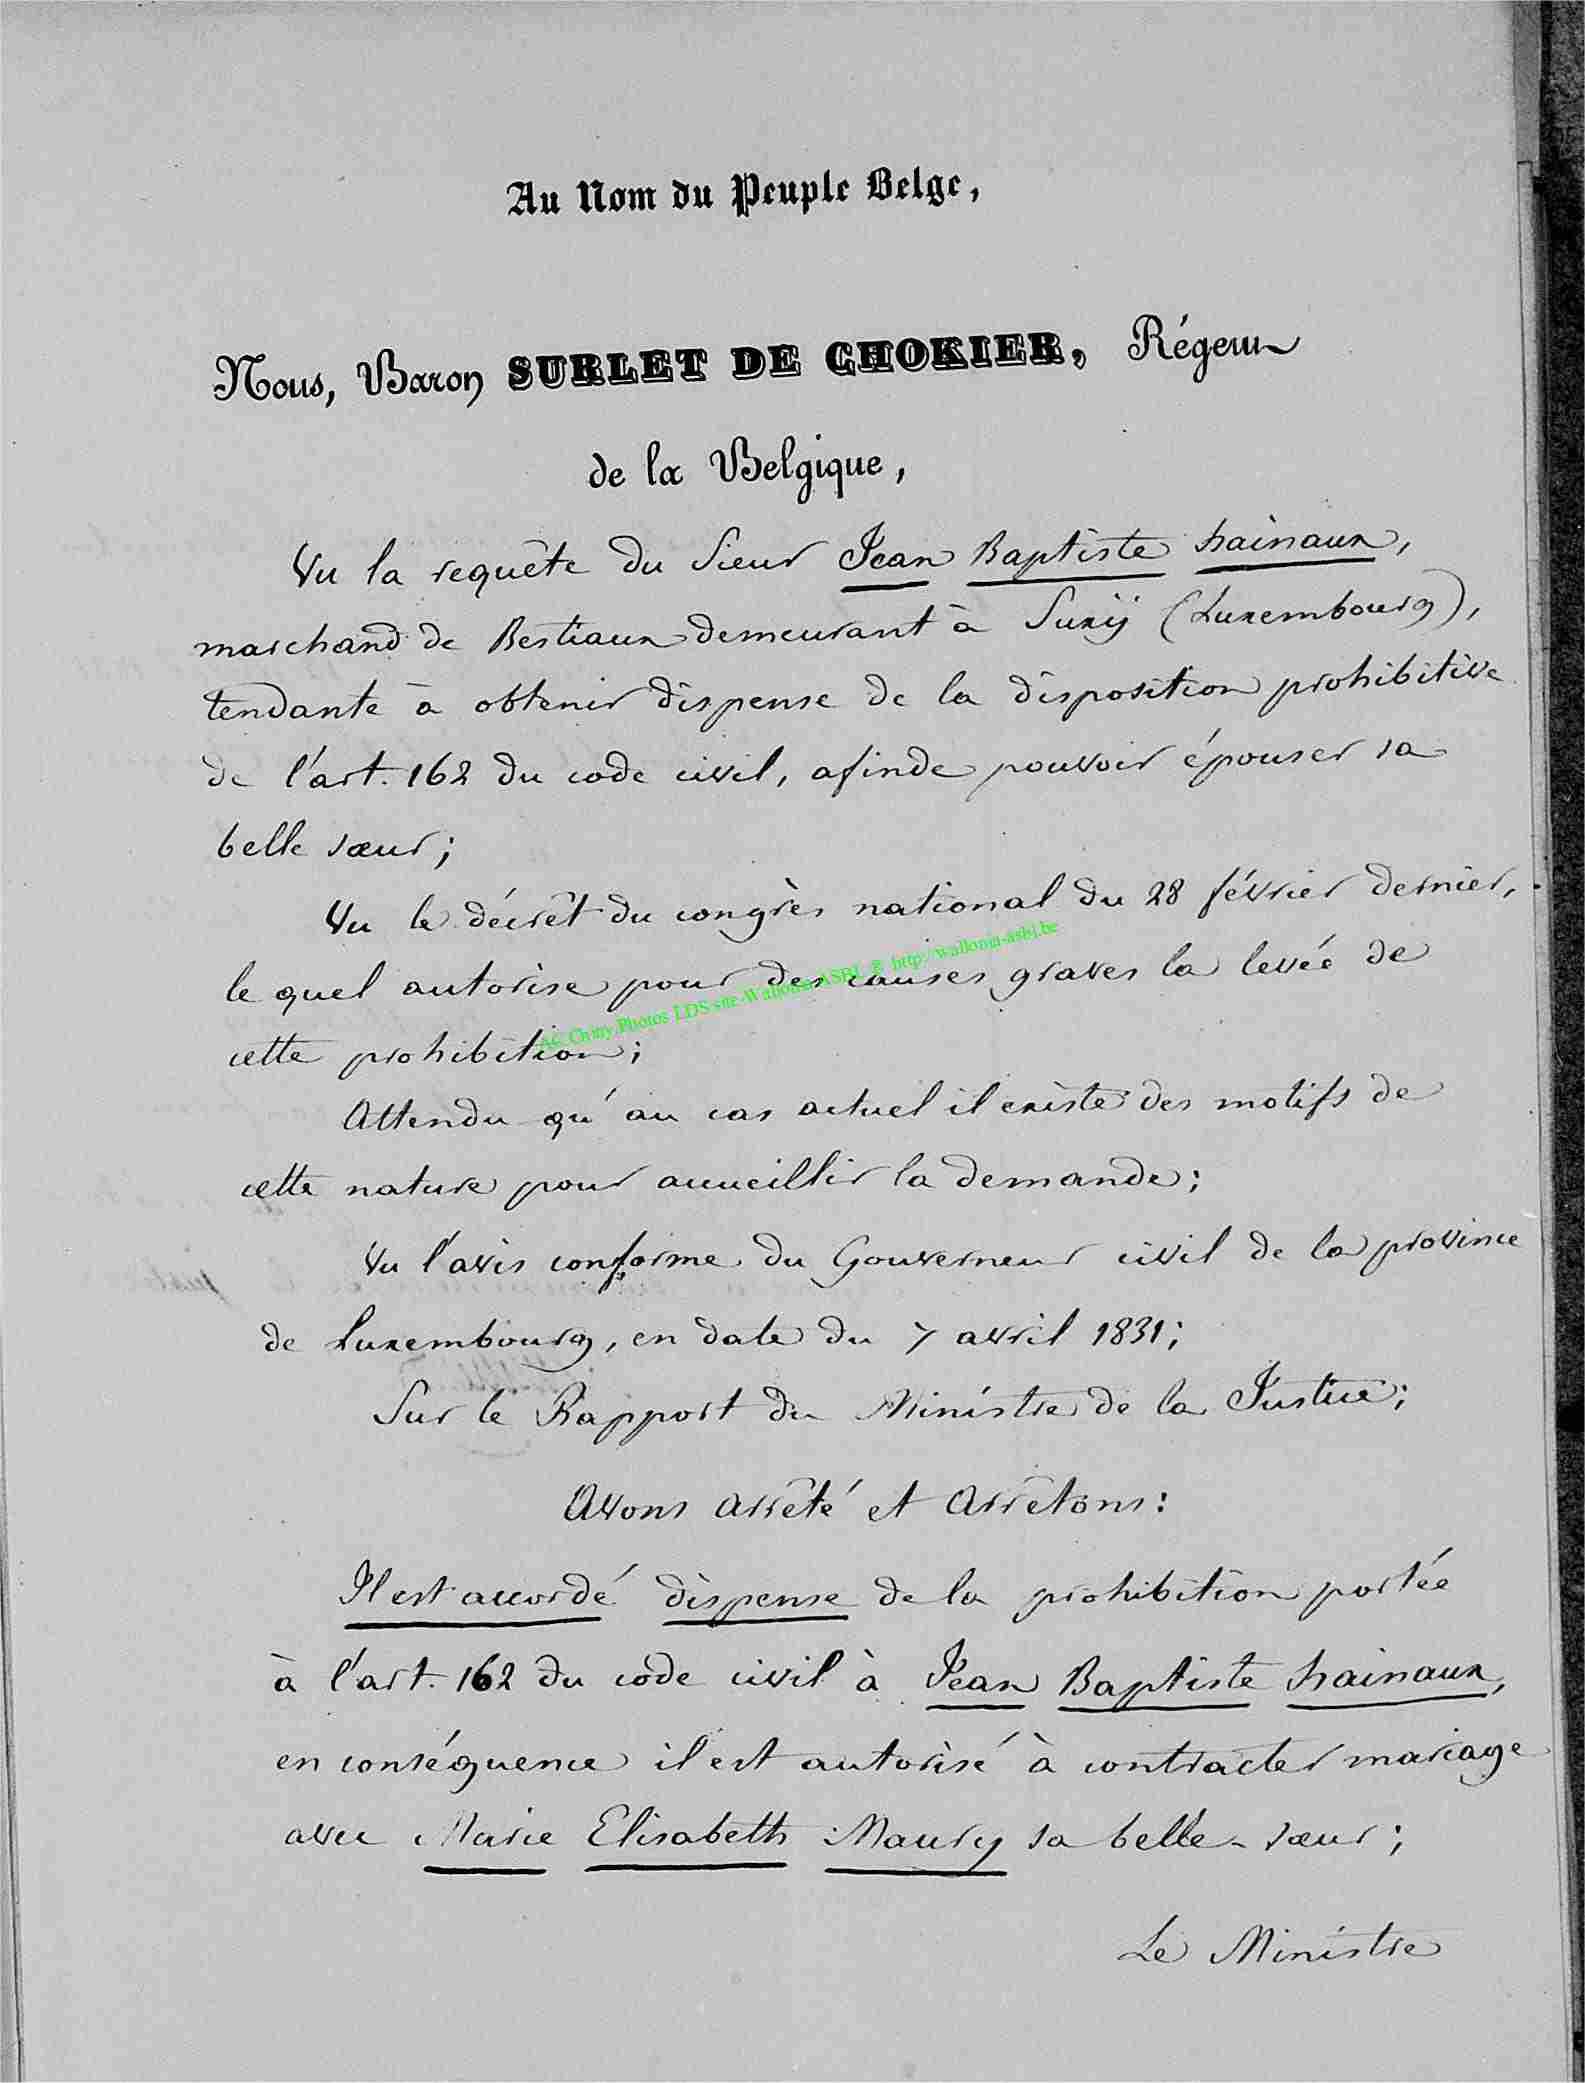 Au Nom du Peuple Belge,
Nous, Baron SURLET DE CHOKIER, Régent
de la Belgique,
Vu la requête du Sieur Jean Baptiste hainaux,
marchand de Bestiaux demeurant à Suxÿ (Luxembourg),
tendante à obtenir dispense de la disposition prohibitive
de l'art. 162 du code civil, afinde pouvoir épouser sa
belle sœur;
Vu le décrêt du congrès national du 28 février dernier,
le quel autorise pour des causes graves la levée de
cette prohibition;
Attendu qu'au cas actuel il existe des motifs de
cette nature pour accueillir la demande;
Vu l'avis conforme du Gouverneur civil de la province
de Luxembourg, en date du 7 avril 1831;
Sur le Rapport du Ministre de la Justice;
Avons arrêté et Arrêtons:
Il est accordé dispense de la prohibition portée
à l'art. 162 du code civil à Jean Baptiste hainaux,
en conséquence il est autorisé à contracter mariage
avec Marie Elisabeth Maury sa belle-sœur;
Le Ministre
AC Chiny Photos LDS site Wallonia ASBL © http://wallonia-asbl.be